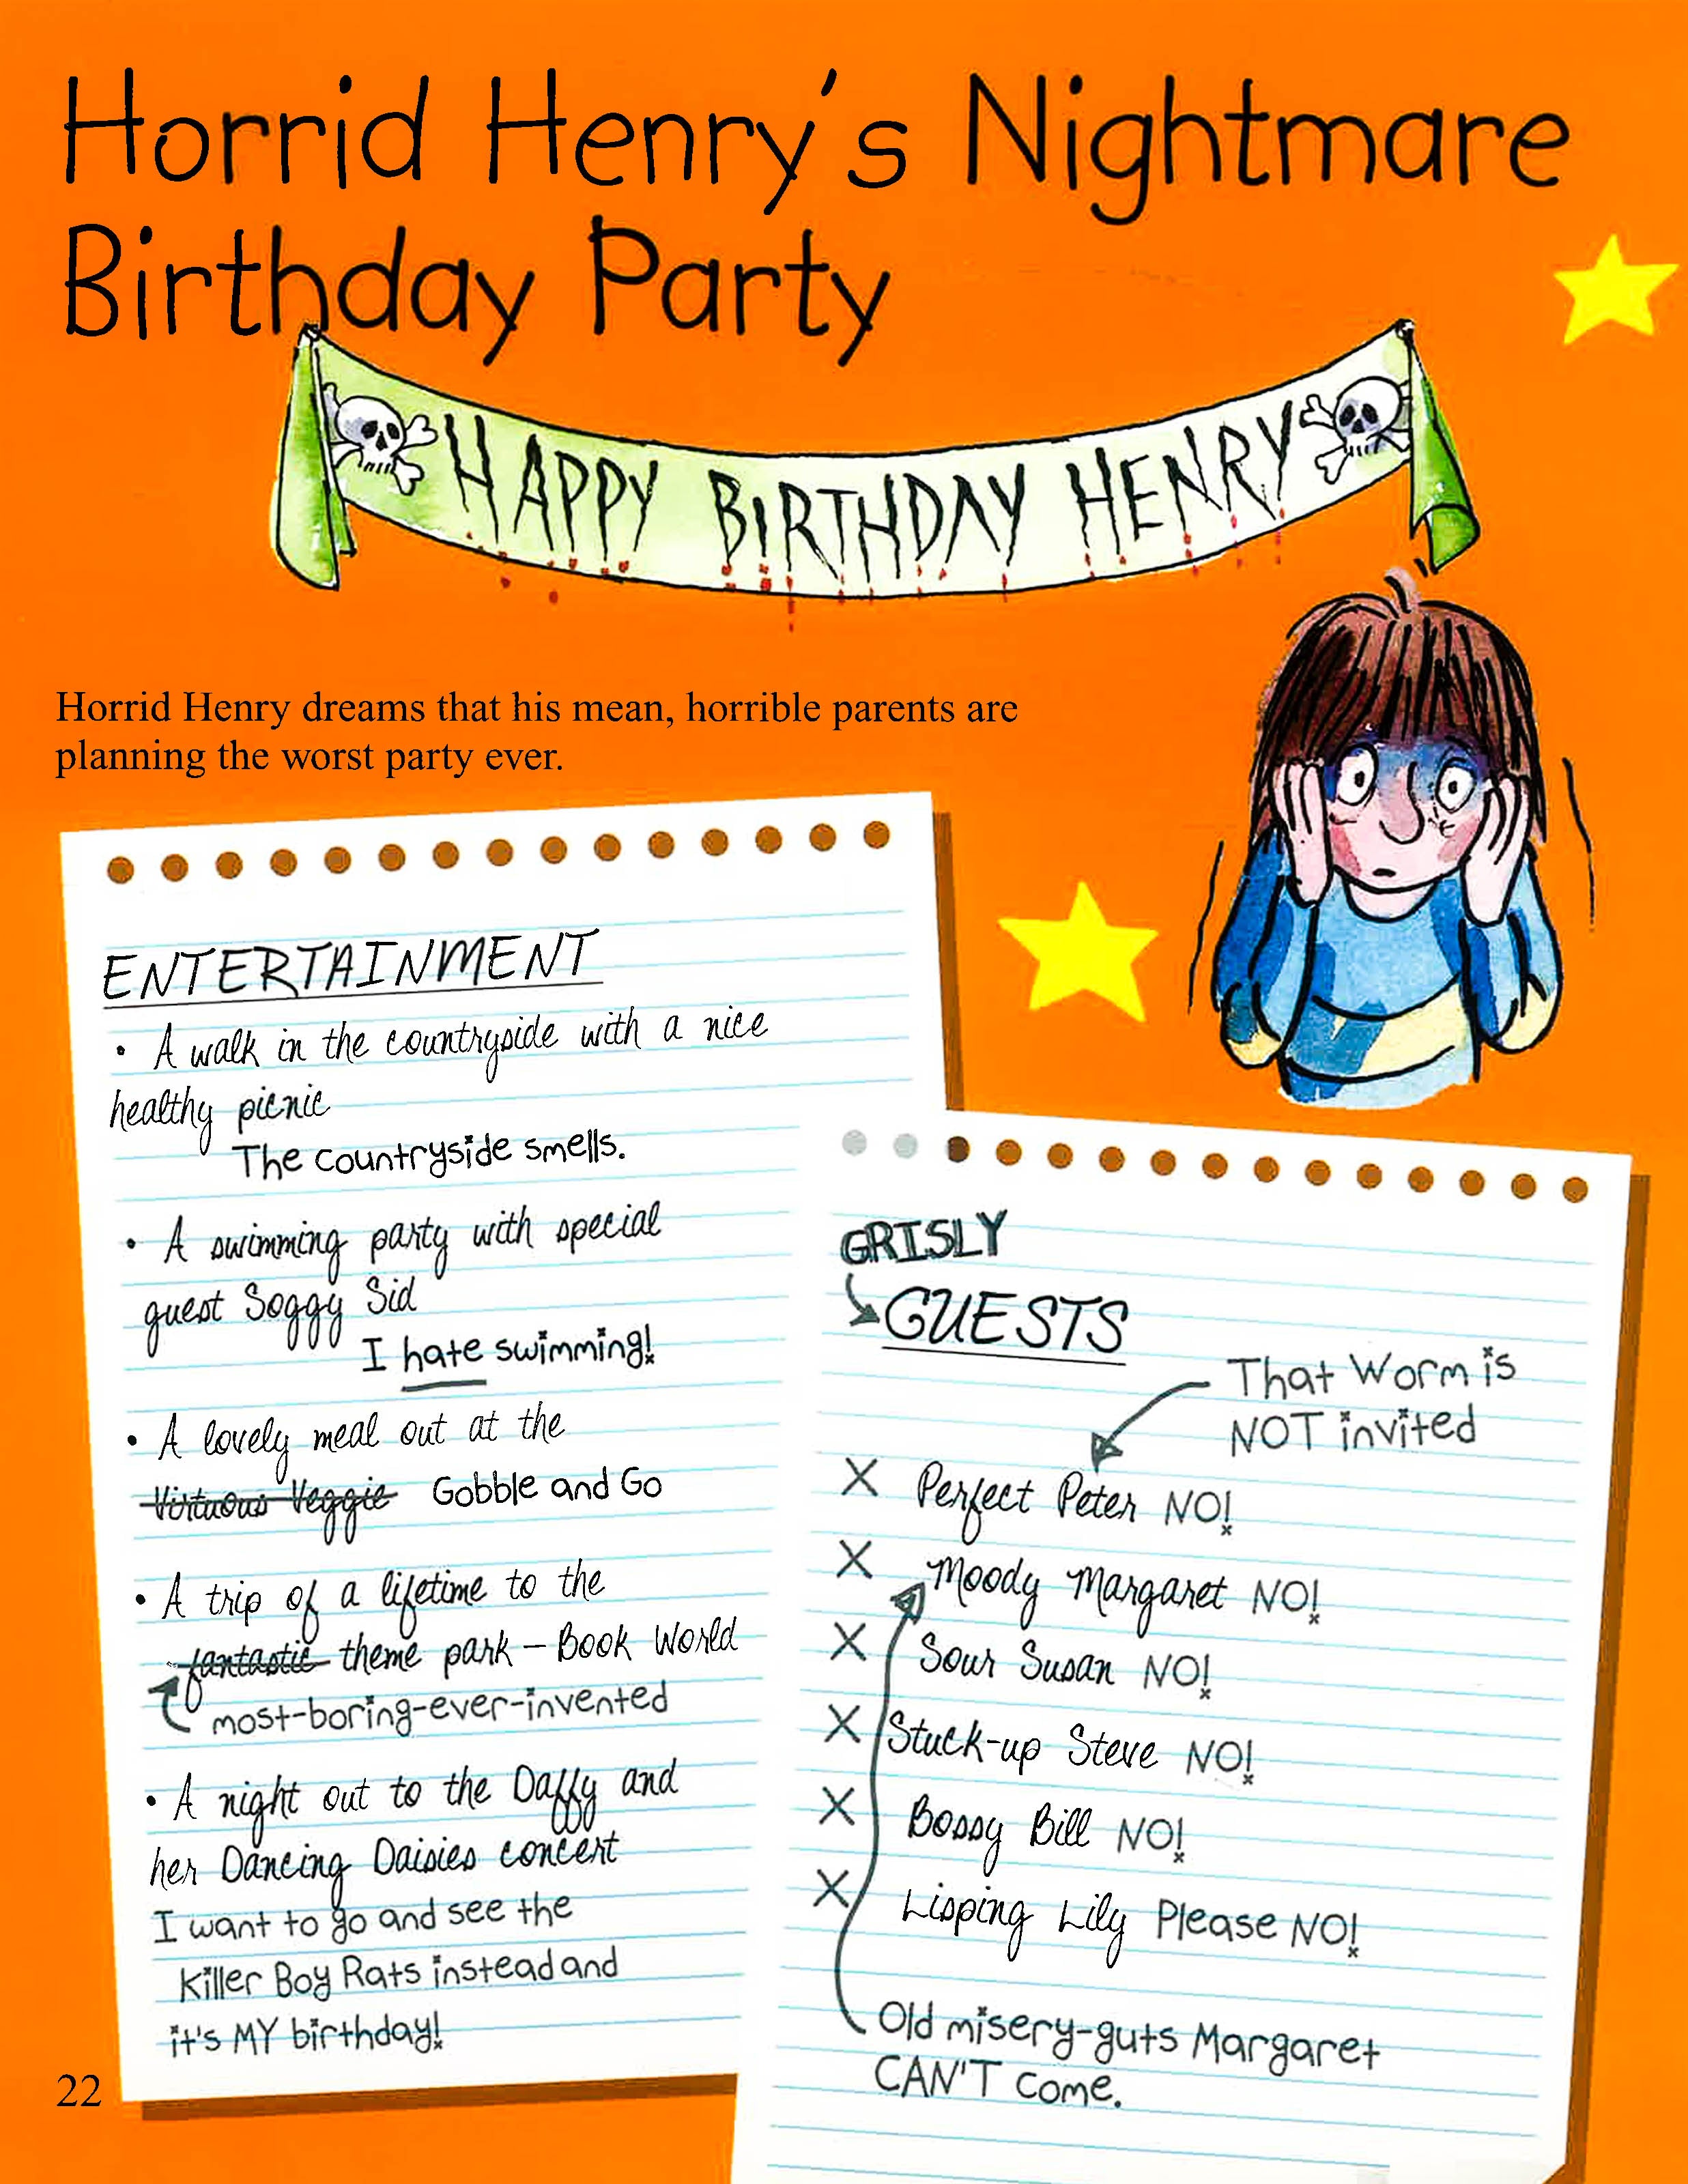 Horrid Henry's Nightmare
Birthday Party
HAPPY BIRTHDAY HENRY
Horrid Henry dreams that his mean, horrible parents are
planning the worst party ever.
ENTERTAINMENT
• A walk in the countryside with a nice
healthy picnic
The countryside smells.
• A swimming party with special
guest Soggy Sid
I hate swimming!
• A lovely meal out at the
Virtuous Veggie Gobble and Go
• A trip of a lifetime to the
fantastic theme park – Book World
most-boring-ever-invented
• A night out to the Daffy and
her Dancing Daisies concert
I want to go and see the
Killer Boy Rats instead and
it's MY birthday!
GRISLY
GUESTS
That Worm is
NOT invited
X Perfect Peter NO!
X Moody Margaret NO!
X Sour Susan NO!
X Stuck-up Steve NO!
X Bossy Bill NO!
X Lisping Lily Please NO!
Old misery-guts Margaret
CAN'T come.
22